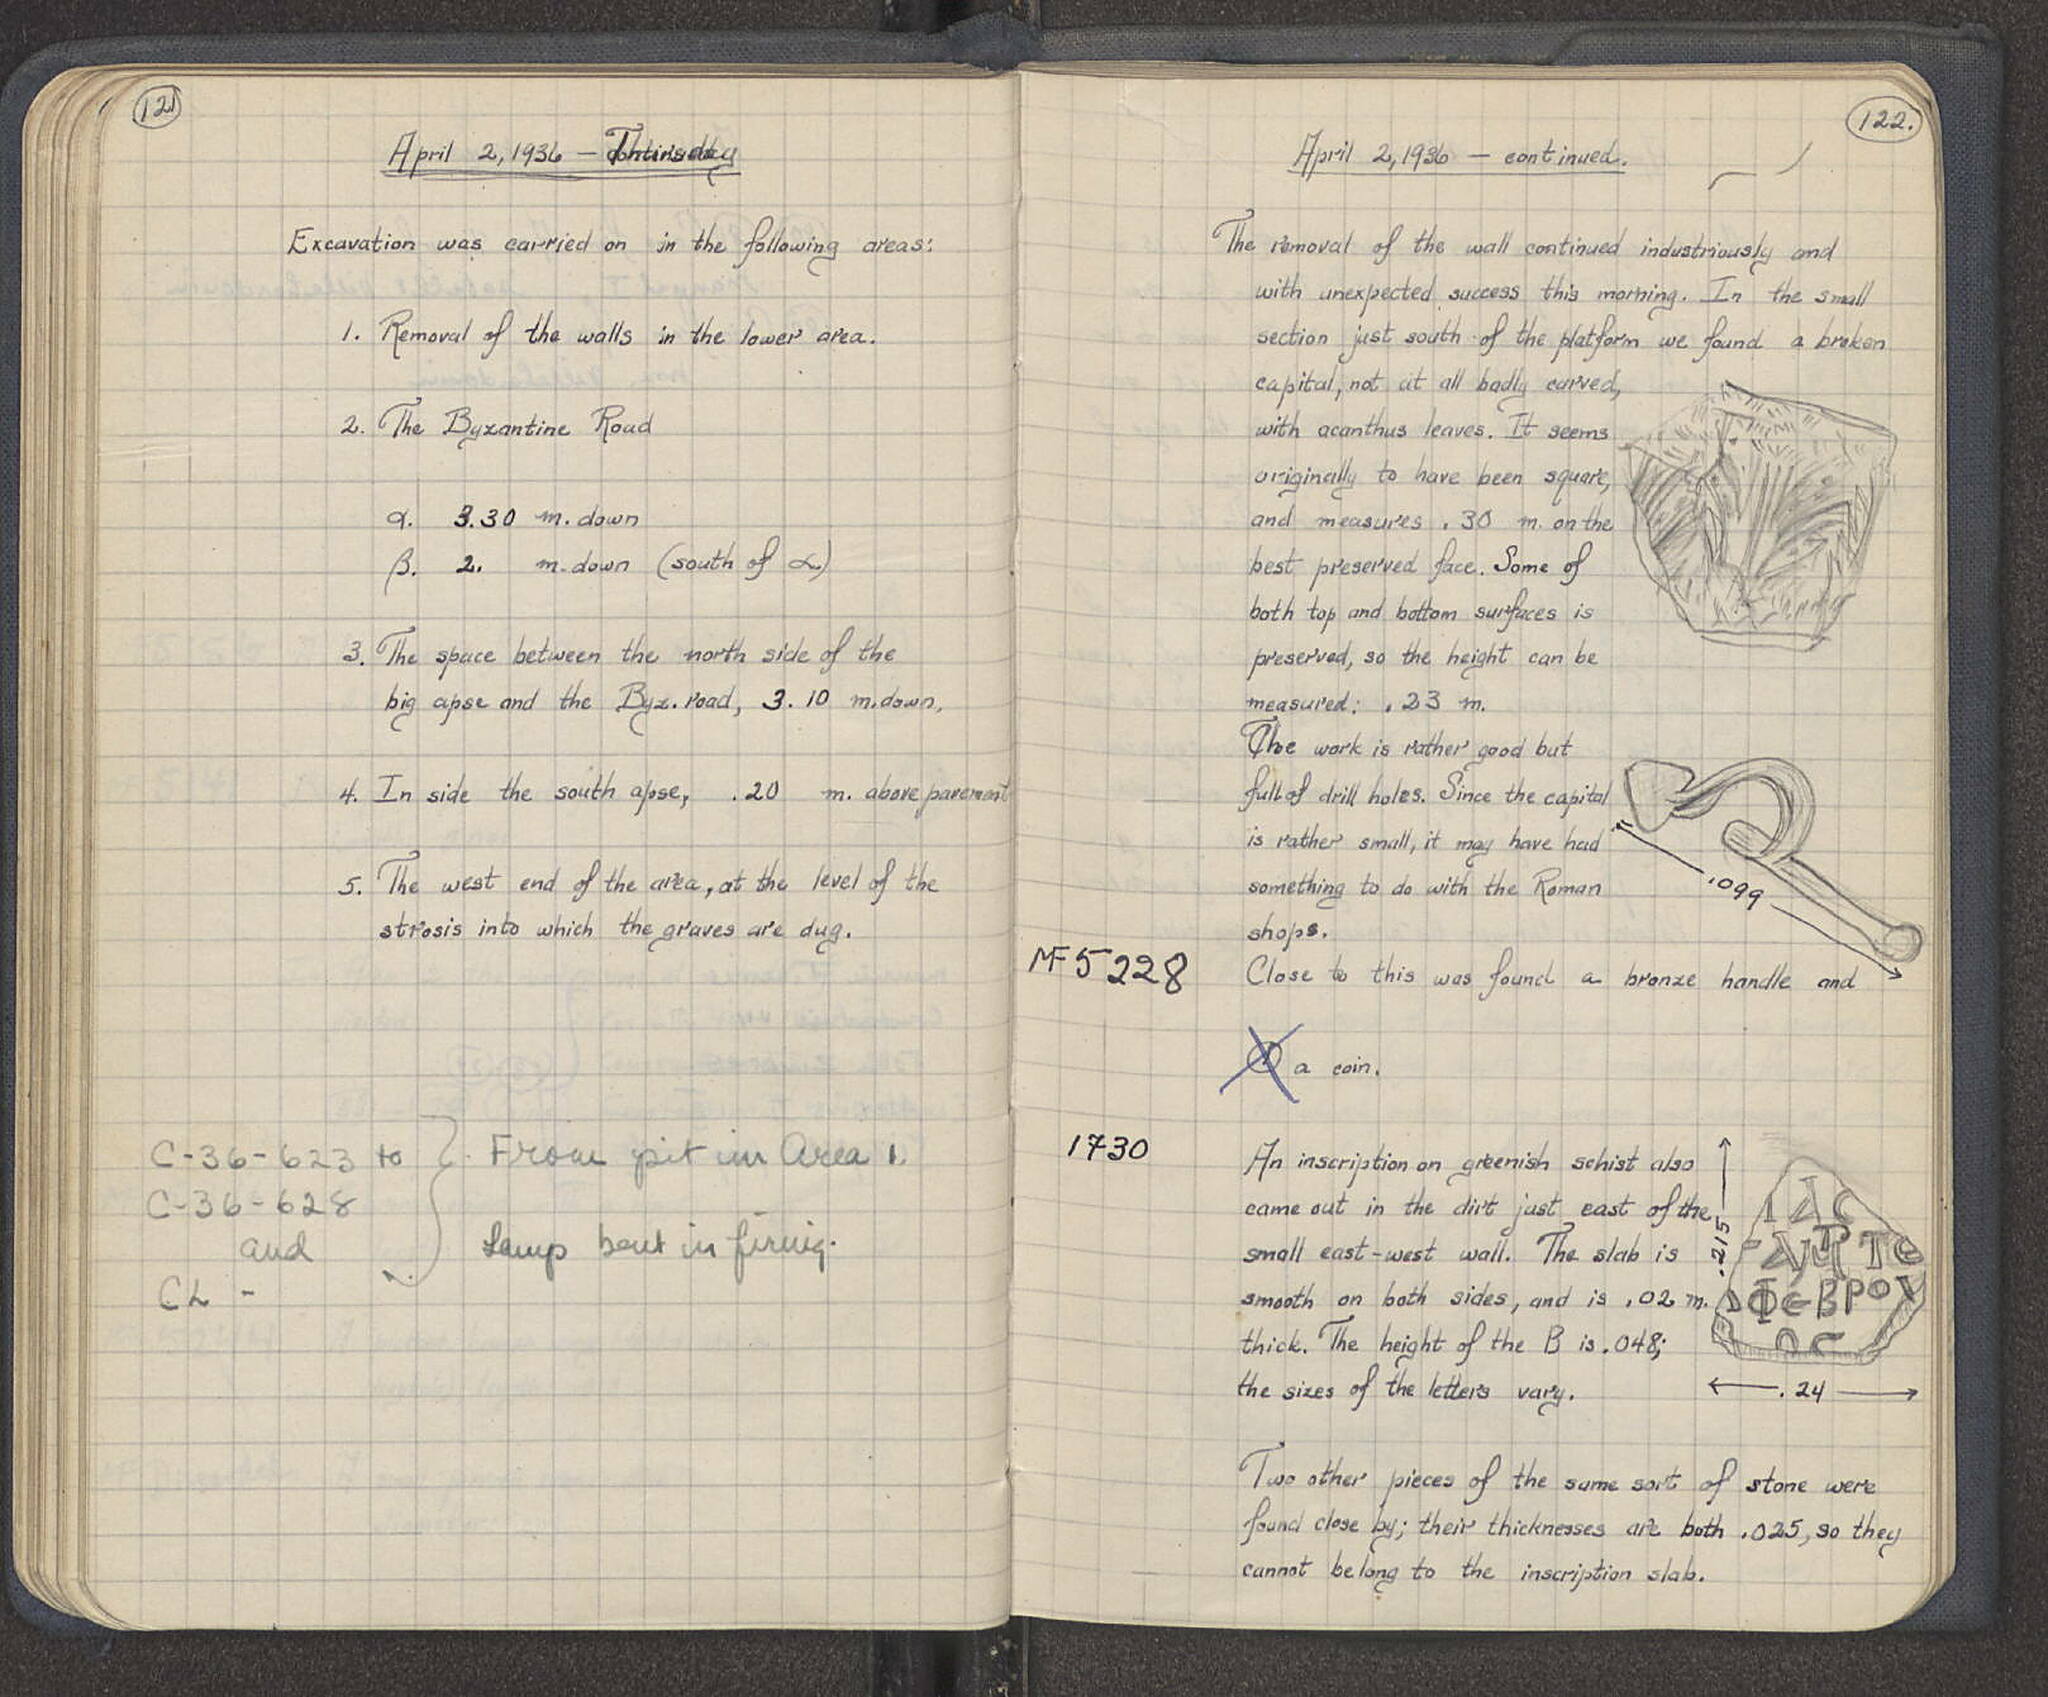 121
April 2, 1936 — Thursday
Excavation was carried on in the following areas:
1. Removal of the walls in the lower area.
2. The Byzantine Road
α. 3.30 m. down
β. 2. m. down (south of α)
3. The space between the north side of the
big apse and the Byz. road, 3.10 m. down.
4. In side the south apse, .20 m. above pavement
5. The west end of the area, at the level of the
strosis into which the graves are dug.
C-36-623 to } From pit in Area 1.
C-36-628
and Lamp bent in firing.
CL -
122.
April 2, 1936 — continued.
The removal of the wall continued industriously and
with unexpected success this morning. In the small
section just south of the platform we found a broken
capital, not at all badly carved,
with acanthus leaves. It seems
originally to have been square,
and measures .30 m. on the
best preserved face. Some of
both top and bottom surfaces is
preserved, so the height can be
measured: .23 m.
The work is rather good but
full of drill holes. Since the capital
is rather small, it may have had
something to do with the Roman
shops.
.099
MF 5228 Close to this was found a bronze handle and
a coin.
1730 An inscription on greenish schist also
came out in the dirt just east of the
small east-west wall. The slab is
smooth on both sides, and is .02 m.
thick. The height of the B is .048;
the sizes of the letters vary.
.215
ΦΕΒΡΟΥ
.24
Two other pieces of the same sort of stone were
found close by; their thicknesses are both .025, so they
cannot belong to the inscription slab.